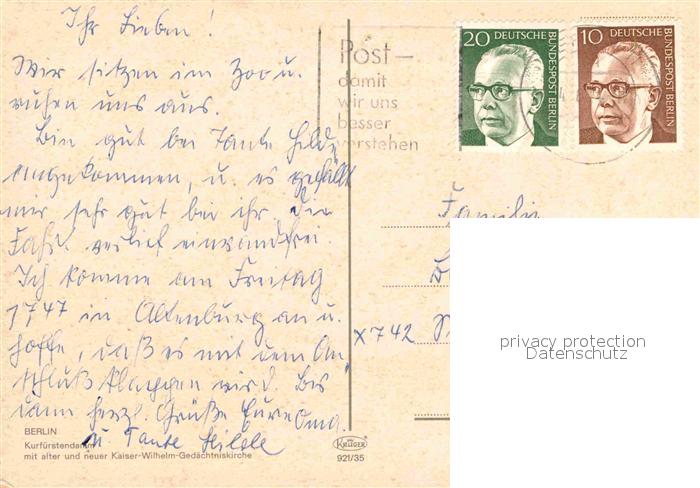 Ihr Lieben!
Wir sitzen im Zoo u.
ruhen uns aus.
Bin gut bei Tante Hilde
angekommen, u. es gefällt
mir sehr gut bei ihr. Die
Fahrt verlief einwandfrei.
Ich komme am Freitag
1747 in Altenburg an u.
hoffe, daß es mit dem An-
schluß klappen wird. Bis
dann herzl. Grüße Eure Oma.
u. Tante Hilde
BERLIN
Kurfürstendamm
mit alter und neuer Kaiser-Wilhelm-Gedächtniskirche
KRÜGER
921/35
Post-
damit
wir uns
besser
verstehen
20 DEUTSCHE
BUNDESPOST BERLIN
10 DEUTSCHE
BUNDESPOST BERLIN
Familie
X742
privacy protection
Datenschutz